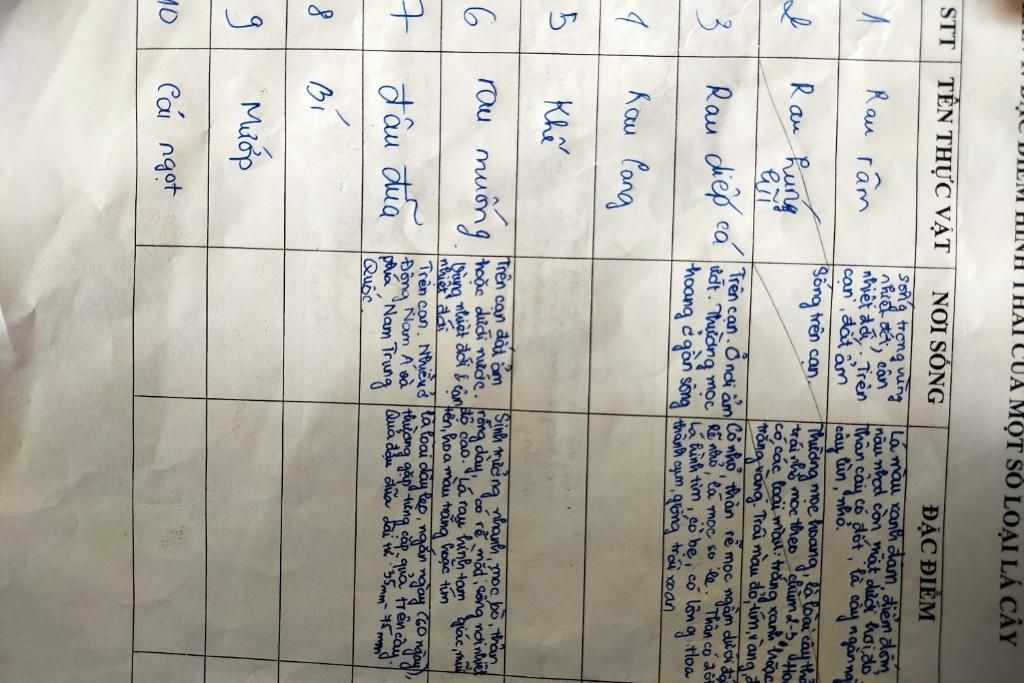 ĐẶC ĐIỂM HÌNH THÁI CỦA MỘT SỐ LOẠI LÁ CÂY
STT TÊN THỰC VẬT NƠI SỐNG ĐẶC ĐIỂM
1 Rau rân
sống trong vùng
nhiệt đới, cận
nhiệt đới. Trên
cạn, đất ẩm
Lá màu xanh đậm, điểm đốm
nâu nhạt con, mặt dưới hơi đỏ
Thân cây có đốt, là cây ngắn
cây lùn, nhỏ.
2 Rau
Sống trên cạn.
Thường mọc hoang, là loài cây
trái nhỏ mọc theo chùm 2-3,
có các loài màu: trắng xanh, hoặc
trắng vàng. Trái màu đỏ tím, vàng
3 Rau diếp cá
Trên cạn. Ở nơi ẩm
ướt. Thường mọc
hoang ở gần sông
Cỏ nhỏ, thân rễ mọc ngầm dưới đất
Rễ nhỏ, lá mọc so le. Thân có
Lá hình tim, có bẹ, có lông Hoa
thành cụm, giống trái xoan
4 Rau lang
5 Khế
6 rau muống
Trên cạn đất ẩm
hoặc dưới nước.
Vùng nhiệt đới & cận
nhiệt đới
Sinh trưởng nhanh, mọc bò, thân
rỗng dày, có rễ mắt, sống nơi nhiệt
độ cao. Lá cây hình tam giác, mũi
tên hoa màu trắng hoặc tím
7 đậu đũa
Trên cạn. Nhiều ở
Đông Nam Á và
phía Nam Trung
Quốc
là loài dây leo, ngắn ngày (60 ngày),
thường gặp từng cặp quả trên cây.
Quả đậu đũa dài từ 35mm - 75mm
8 Bí
9 Mướp
10 Cải ngọt